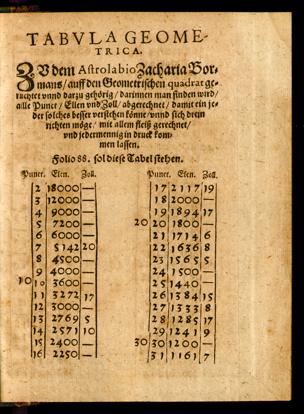 TABVLA GEOME-
TRICA.
ZV dem Astrolabio Zachariæ Bor-
mans/ auff den Geometrischen quadrat ge-
richtet vnnd darzu gehörig/ darinnen man finden wird/
alle Punct/ Ellen vnd Zoll/ abgerechnet/ damit ein je-
der solches besser verstehen könne/ vnnd sich drein
richten möge/ mit allem fleiß gerechnet/
vnd jedermennig in druck kom-
men lassen.
Folio 88. sol diese Tabel stehen.
Punct. Elen. Zoll.
2 18000 —
3 12000 —
4 9000 —
5 7200 —
6 6000 —
7 5142 20
8 4500 —
9 4000 —
10 10 3600 —
11 3272 17
12 3000 —
13 2769 5
14 2571 10
15 2400 —
16 2250 —
Punct. Elen. Zoll.
17 2117 19
18 2000 —
19 1894 17
20 20 1800 —
21 1714 6
22 1636 8
23 1565 5
24 1500 —
25 1440 —
26 1384 15
27 1333 8
28 1285 17
29 1241 9
30 30 1200 —
31 1161 7